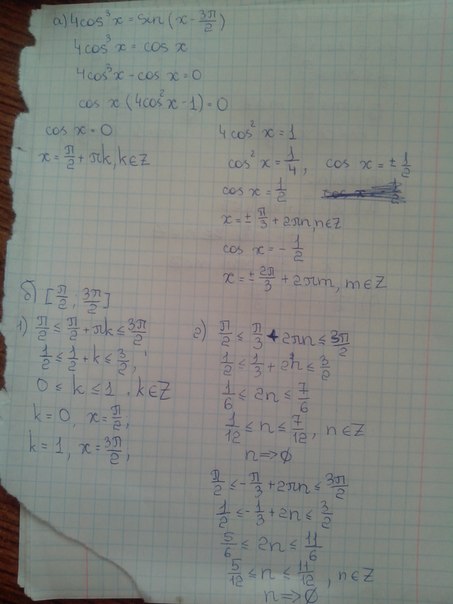 а) 4cos³x = sin(x - 3π/2)
4cos³x = cos x
4cos³x - cos x = 0
cos x (4cos²x - 1) = 0
cos x = 0
x = π/2 + πk, k∈Z
4cos²x = 1
cos²x = 1/4, cos x = ± 1/2
cos x = 1/2
x = ± π/3 + 2πn, n∈Z
cos x = - 1/2
x = ± 2π/3 + 2πm, m∈Z
б) [π/2, 3π/2]
1) π/2 ≤ π/2 + πk ≤ 3π/2
1/2 ≤ 1/2 + k ≤ 3/2,
0 ≤ k ≤ 1, k∈Z
k = 0, x = π/2,
k = 1, x = 3π/2,
2) π/2 ≤ π/3 + 2πn ≤ 3π/2
1/2 ≤ 1/3 + 2n ≤ 3/2
1/6 ≤ 2n ≤ 7/6
1/12 ≤ n ≤ 7/12, n∈Z
n ⇒ ∅
π/2 ≤ - π/3 + 2πn ≤ 3π/2
1/2 ≤ - 1/3 + 2n ≤ 3/2
5/6 ≤ 2n ≤ 11/6
5/12 ≤ n ≤ 11/12, n∈Z
n ⇒ ∅